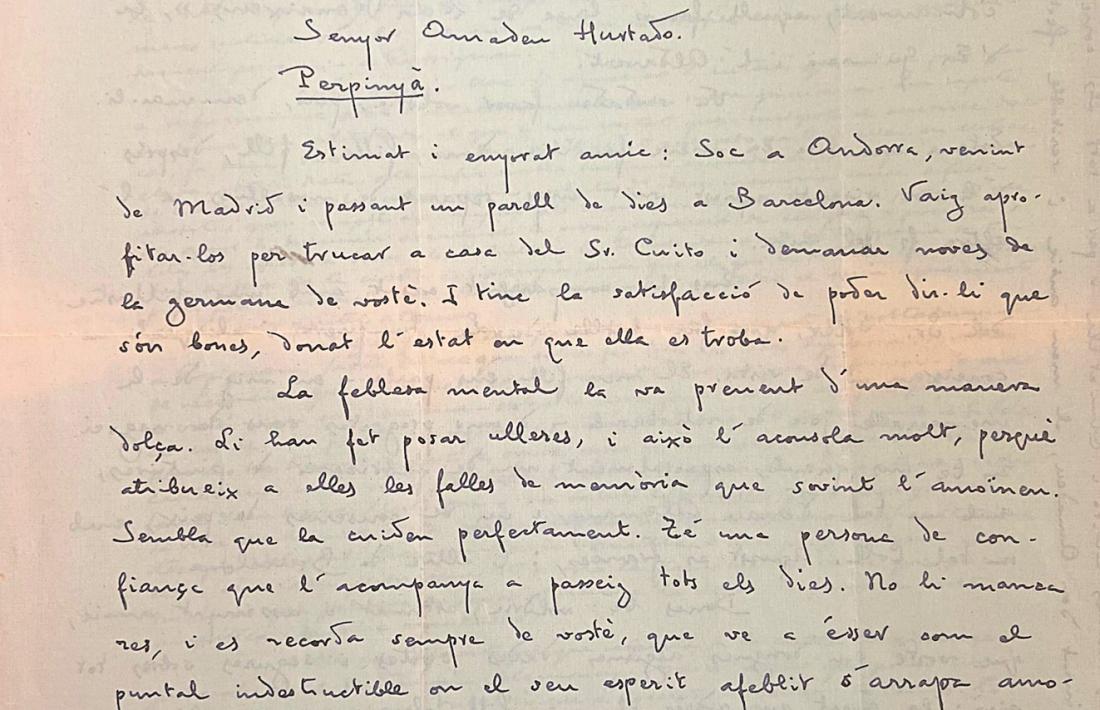 Senyor Amadeu Hurtado.
Perpinyà.
Estimat i enyorat amic: Soc a Andorra, venint
de Madrid i passant un parell de dies a Barcelona. Vaig apro-
fitar-los per trucar a casa del Sr. Cuito i demanar noves de
la germana de vostè. I tinc la satisfacció de poder dir-li que
són bones, donat l'estat en que ella es troba.
La feblesa mental la va prenent d'una manera
dolça. Li han fet posar ulleres, i aixo l'aconsola molt, perquè
atribueix a elles les falles de memòria que sovint l'amoïnen.
Sembla que la cuiden perfectament. Té una persona de con-
fiança que l'acompanya a passeig tots els dies. No li manca
res, i es recorda sempre de vostè, que ve a ésser com el
puntal indestructible on el seu esperit afeblit s'arrapa amo-